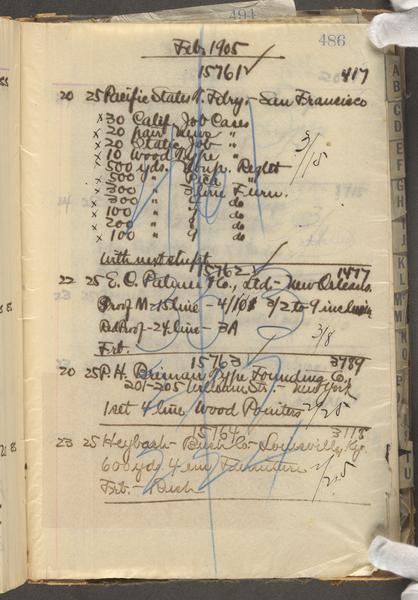 494
486
Feb. 1905
15761 ✓
417
20 25 Pacific States T. Fdry. - San Francisco
x 30 Calif. Job Cases
x 20 pair News "
x 20 Static Job "
x 10 Wood Type "
x 500 yds. Comp. Reglet
x 500 " "
x 300 " 3 line Furn.
x 300 " 4 do
x 100 " do
x 200 " 8 do
x 100 " 9 do
3/18
with next shipt
15762 ✓
1477
22 25 E. C. Palmer & Co., Ltd - New Orleans.
Proof M - 15 line - 4/10$ 2/2 to 9 inclusive
Rd Prof - 24 line - 3A
3/8
Frt.
15763 ✓
3789
20 25 P. H. Bresnan Type Founding Co.
201-205 William St. - New York
1 set 4 line Wood Pointers 2/25
15764 ✓
3118
23 25 Heybach - Bush Co - Louisville, Ky.
600 yds. 4 em Furniture
2/25
Frt. - Rush
A
B
C
D
E
F
G
H
I
J
K
L
M
N
O
T
U